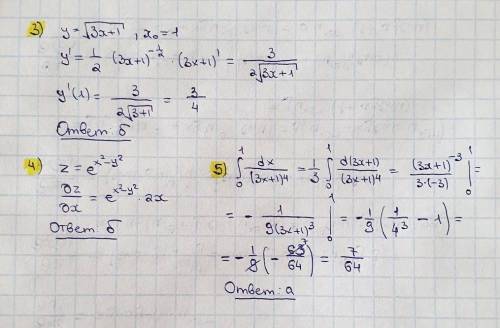 3) y = √(3x+1), x₀ = 1
y' = 1/2 (3x+1)^(-1/2) · (3x+1)' = 3/(2√(3x+1))
y'(1) = 3/(2√(3+1)) = 3/4
Ответ: б
4) z = e^(x²-y²)
∂z/∂x = e^(x²-y²) · 2x
Ответ: б
5) ∫₀¹ dx/(3x+1)⁴ = 1/3 ∫₀¹ d(3x+1)/(3x+1)⁴ = (3x+1)^(-3)/(3·(-3)) |₀¹ =
= - 1/(9(3x+1)³) |₀¹ = -1/9 (1/4³ - 1) =
= -1/9 (-63/64) ⁷ = 7/64
Ответ: а